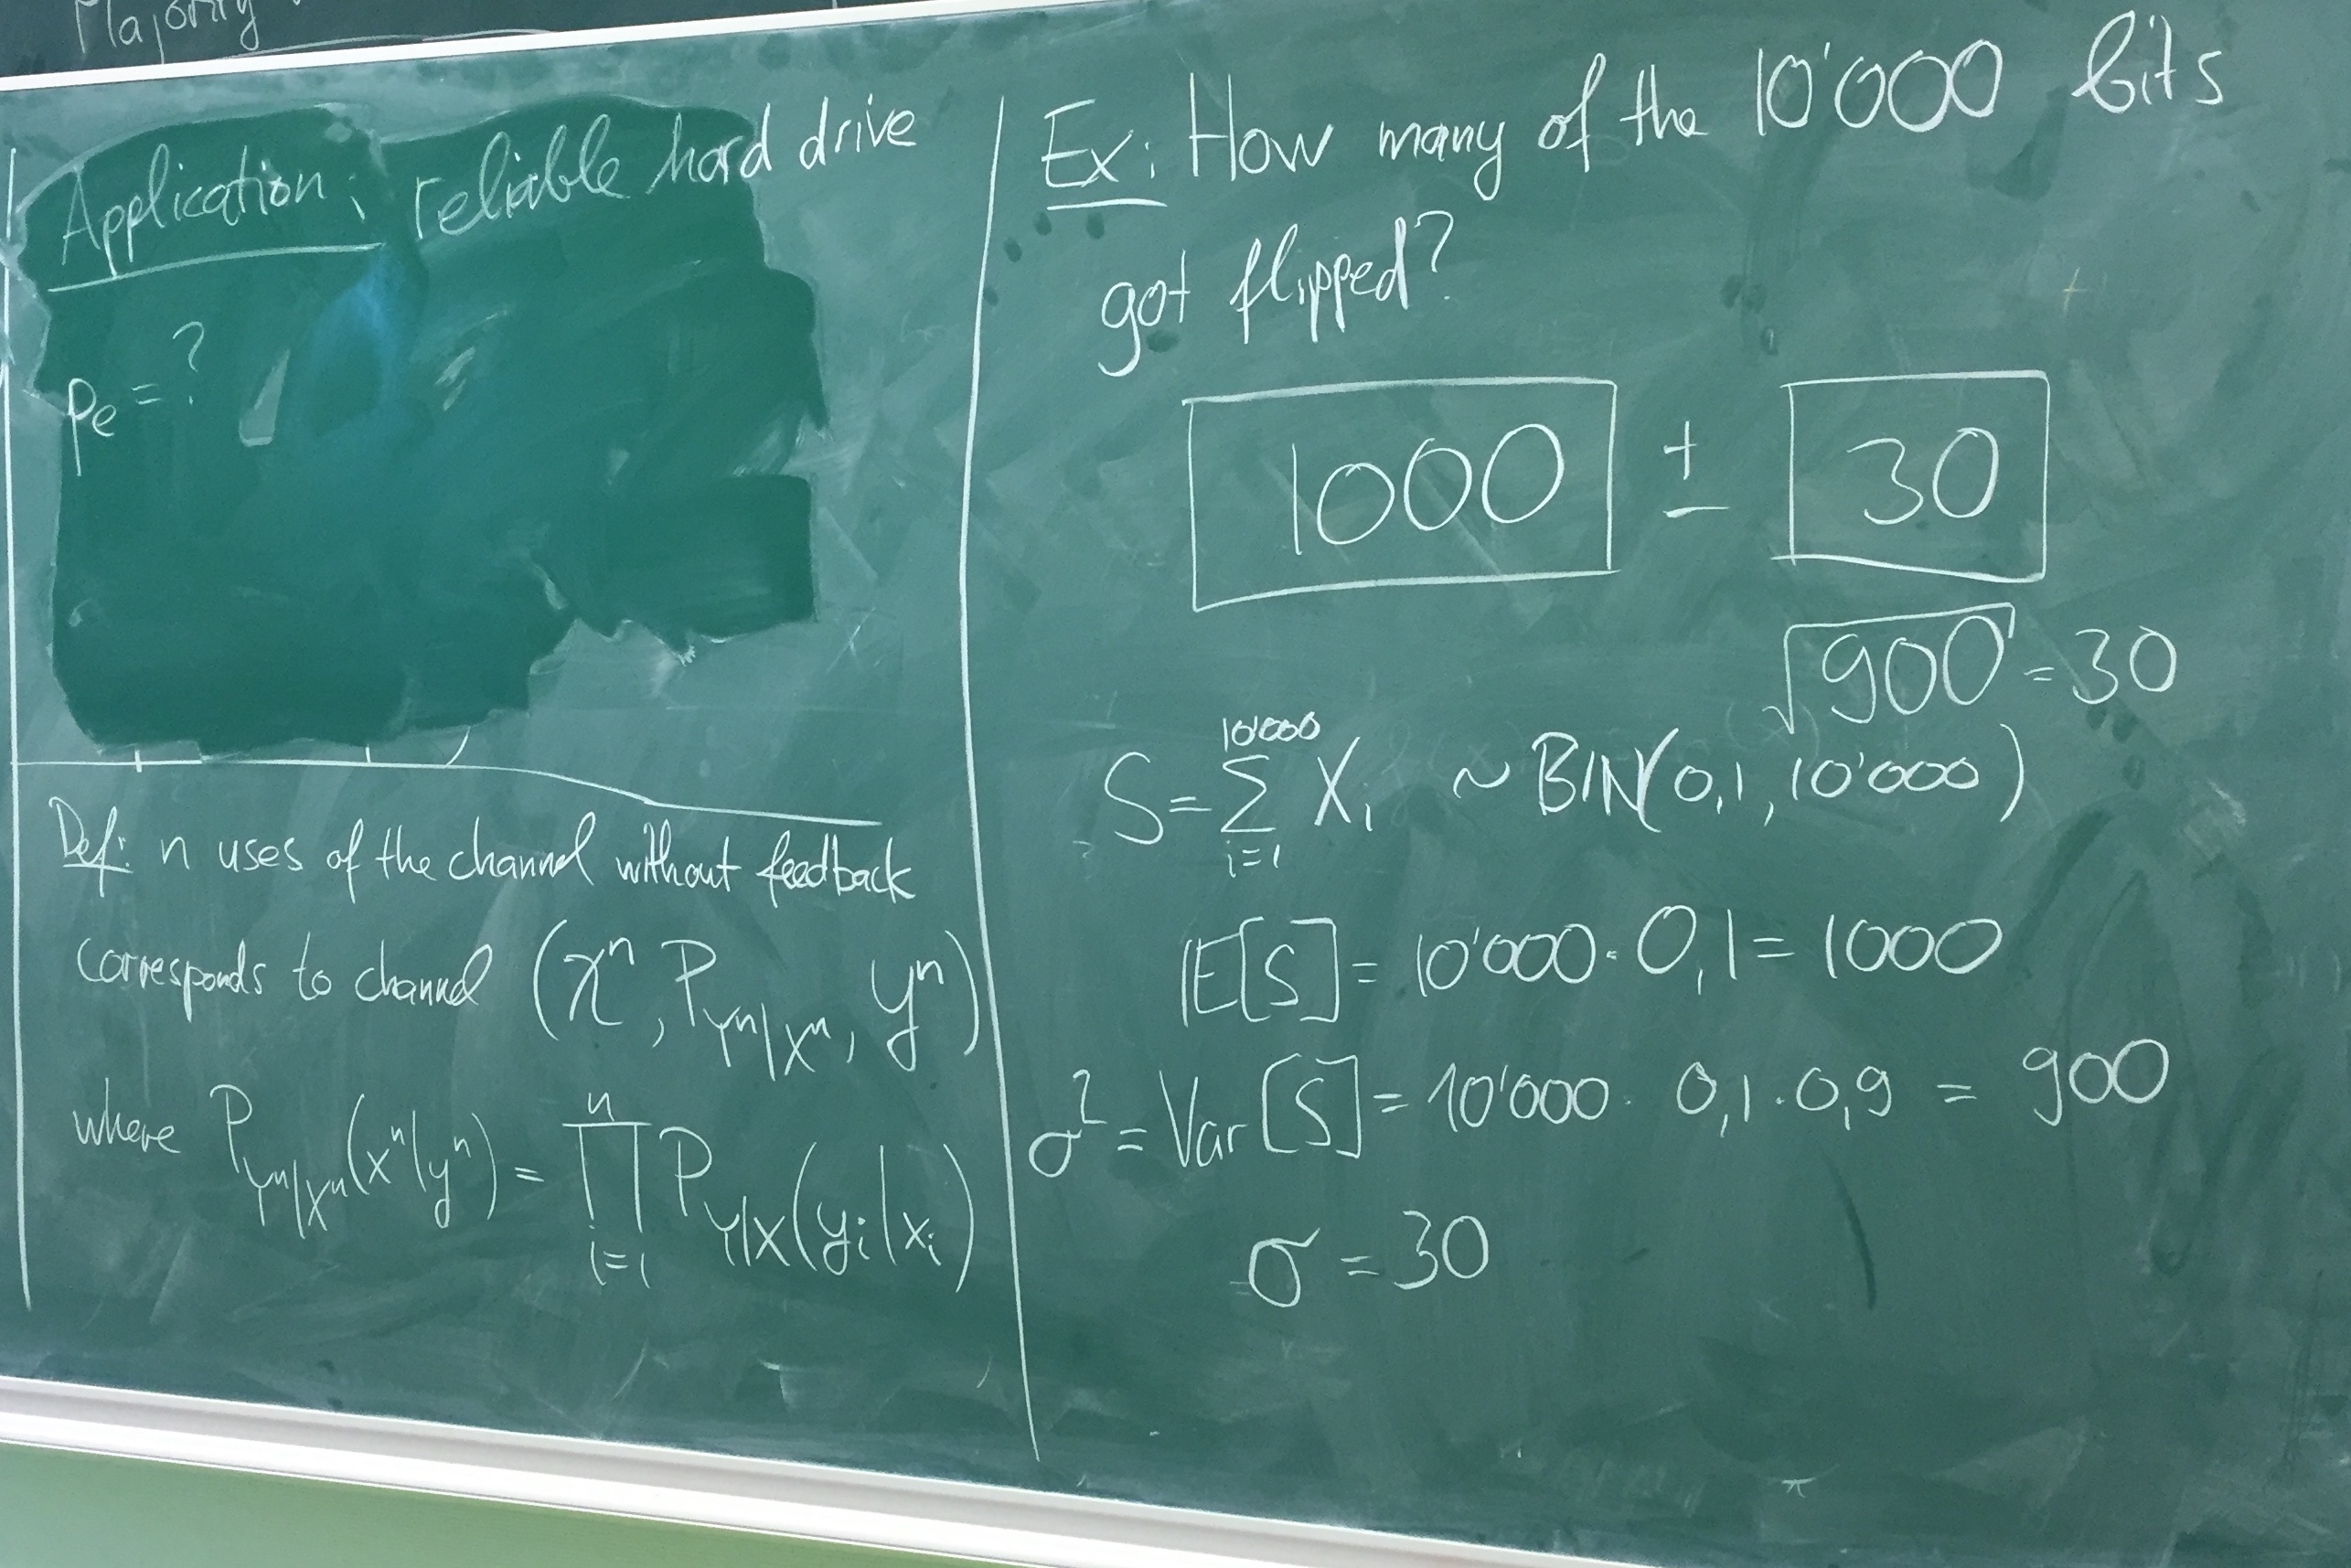 Majority
Application: reliable hard drive
pe = ?
Def: n uses of the channel without feedback
corresponds to channel (𝒳ⁿ, P_{Yⁿ|Xⁿ}, 𝒴ⁿ)
where P_{Yⁿ|Xⁿ}(xⁿ|yⁿ) = ∏_{i=1}^{n} P_{Y|X}(y_i|x_i)
Ex: How many of the 10'000 bits
got flipped?
1000 ± 30
√900 = 30
S = ∑_{i=1}^{10'000} X_i ~ BIN(0,1, 10'000)
𝔼[S] = 10'000 · 0,1 = 1000
σ² = Var[S] = 10'000 · 0,1 · 0,9 = 900
σ = 30